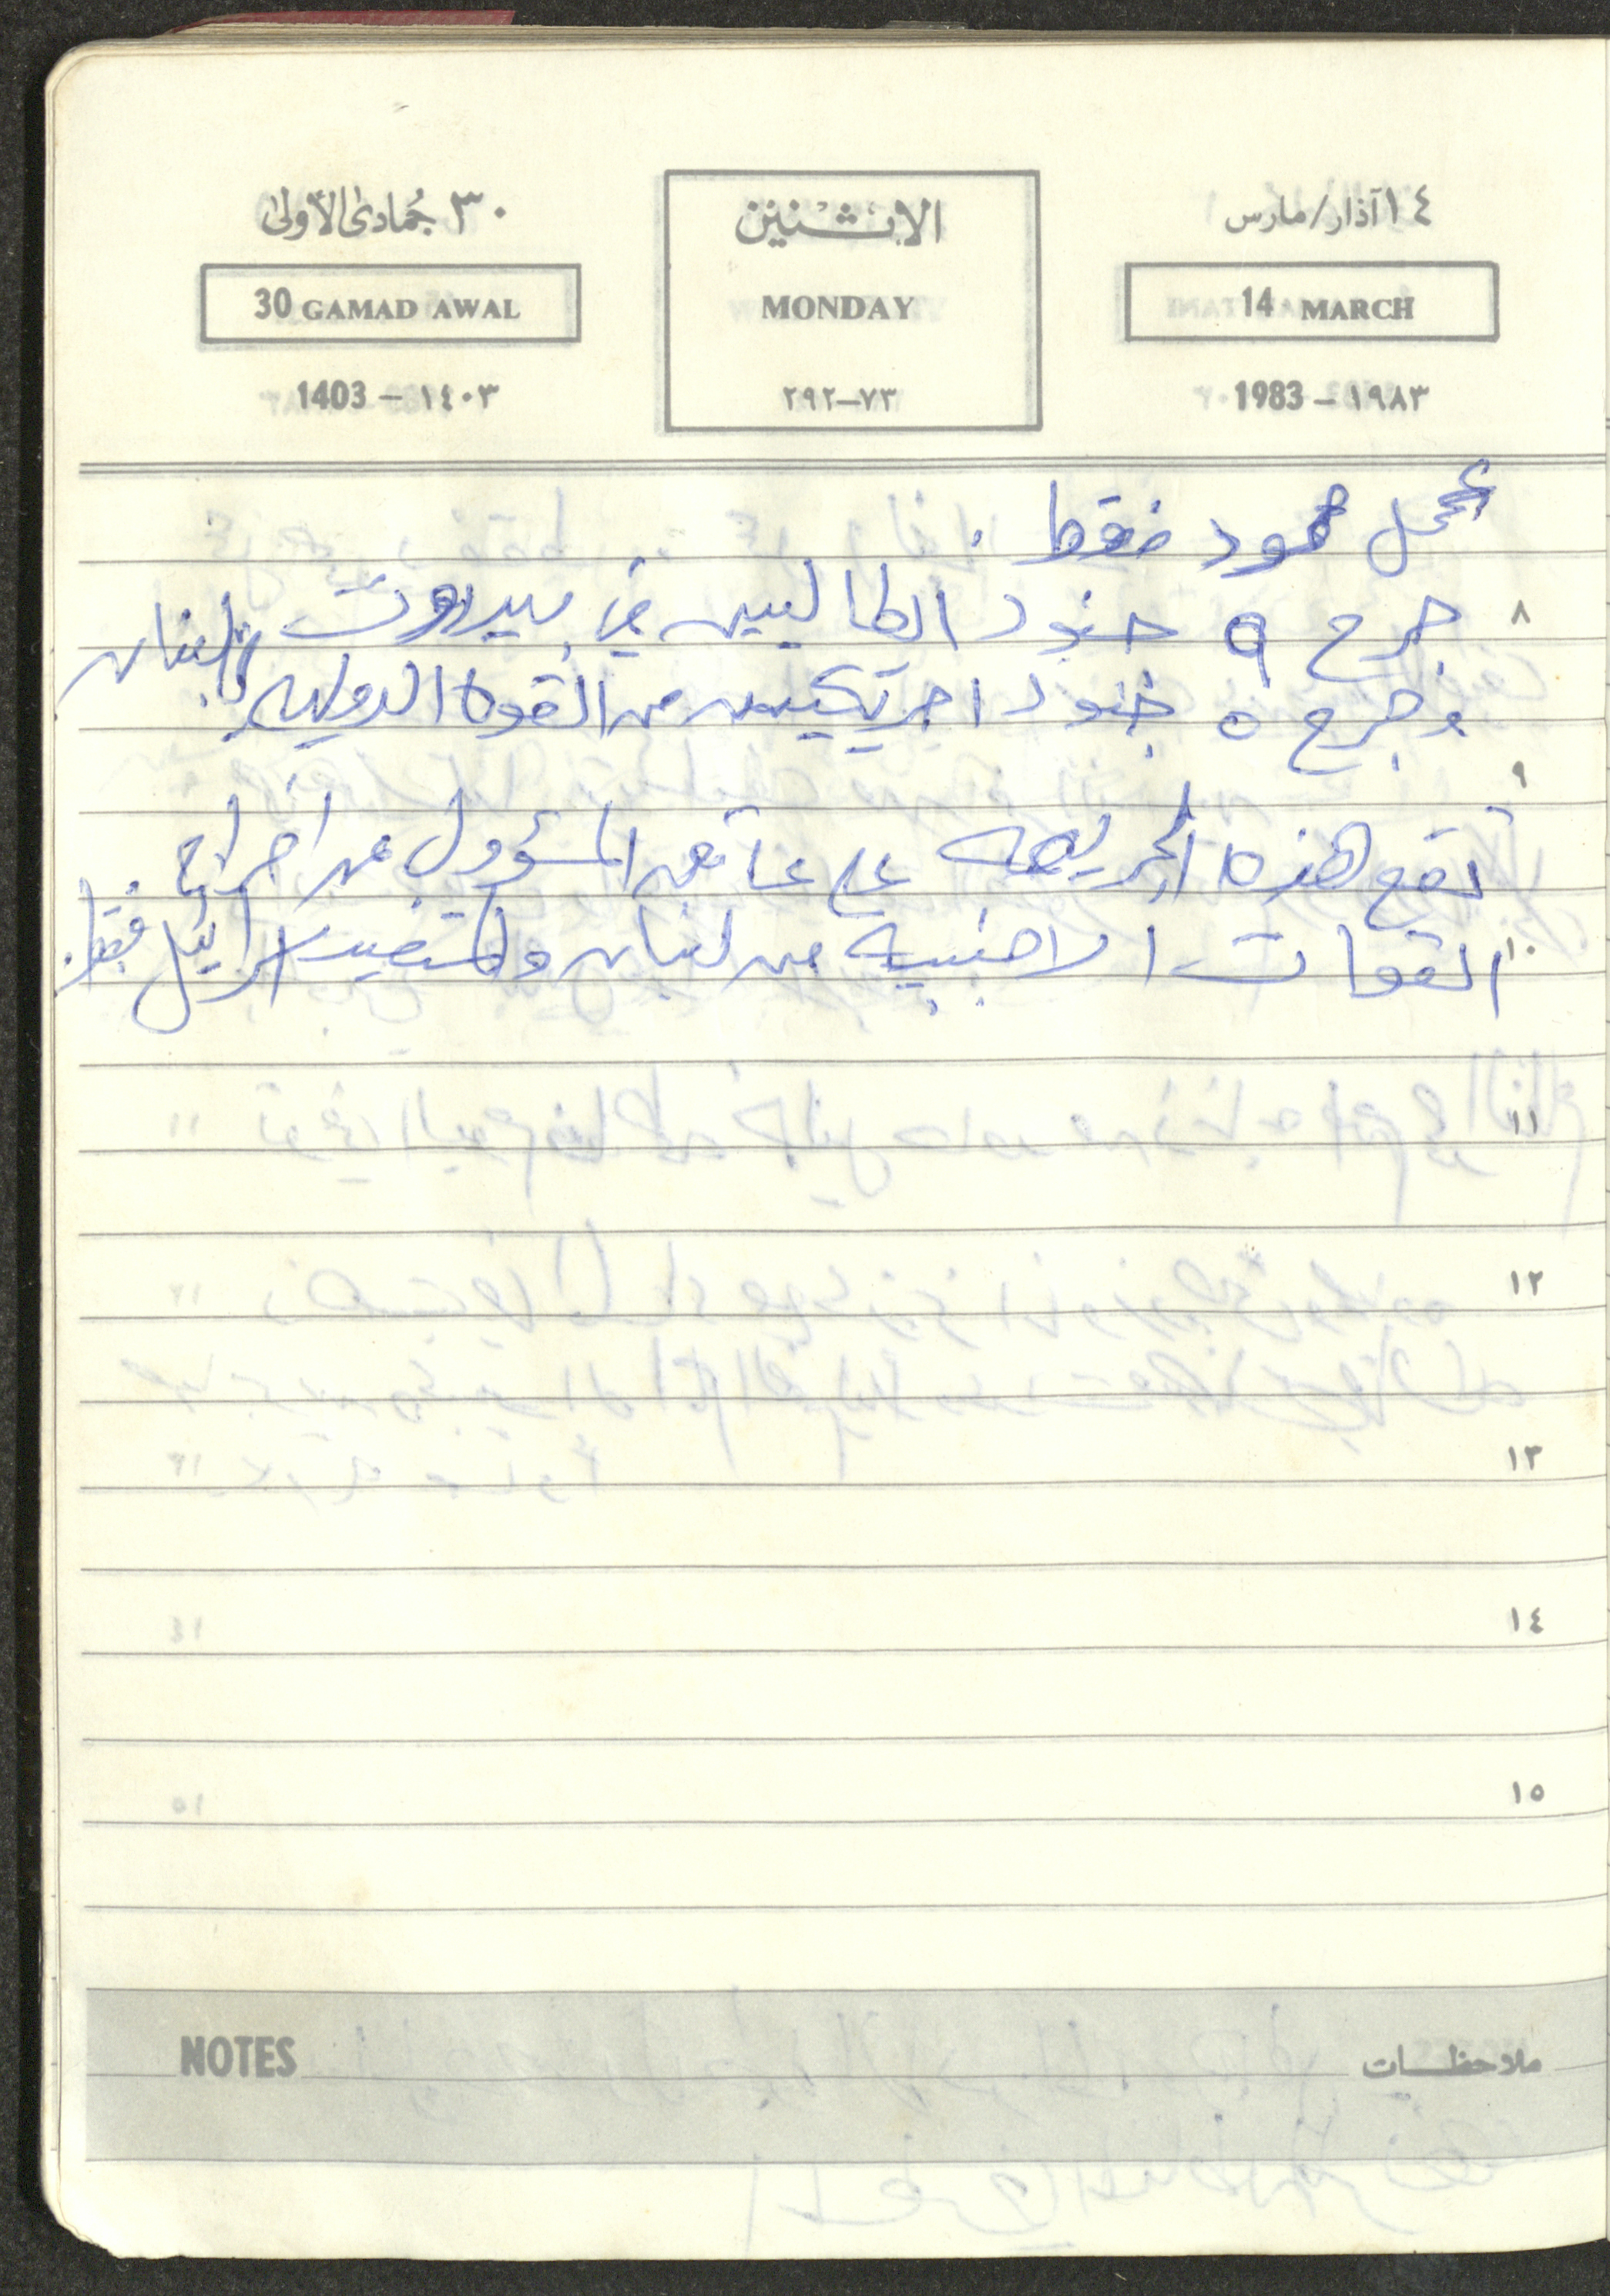 ١٤ آذار/مارس
الاثنين
٣٠ جُمادى الأولى
14 MARCH
MONDAY
30 GAMAD AWAL
1983 - ١٩٨٣
٢٩٢-٧٣
1403 - ١٤٠٣
عمل محمود فقط .
٨ جرح ٩ جنود ايطاليين في بيروت لبنان
وجرح ٥ جنود امريكيين من القوة الدولية
٩
تقع هذه الجريمة على عاتق المسؤول عن اخراج
١٠ القوات الاجنبية من لبنان والمستفيد اسرائيل فقط .
١١
١٢
١٣
١٤
١٥
ملاحظات NOTES